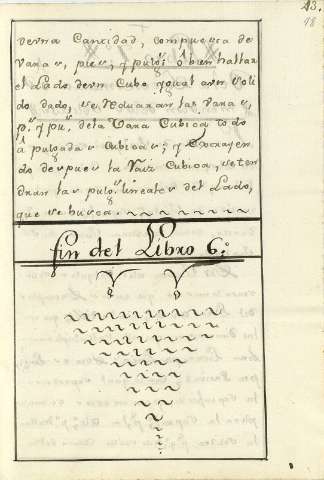 13.
18
de una Cantidad, compuesta de
Varas, pies, y pulg.s ò bien hallar
el Lado de un Cubo ygual a un soli
do dado, se reduxan las varas,
p.s y pu.s de la Vara Cubica todo
â pulgadas Cubicas; y Extrayen
do despues la Raiz Cubica, se ten
dran las pulg.s lineales del Lado,
que se busca.
fin del Libro 6.º